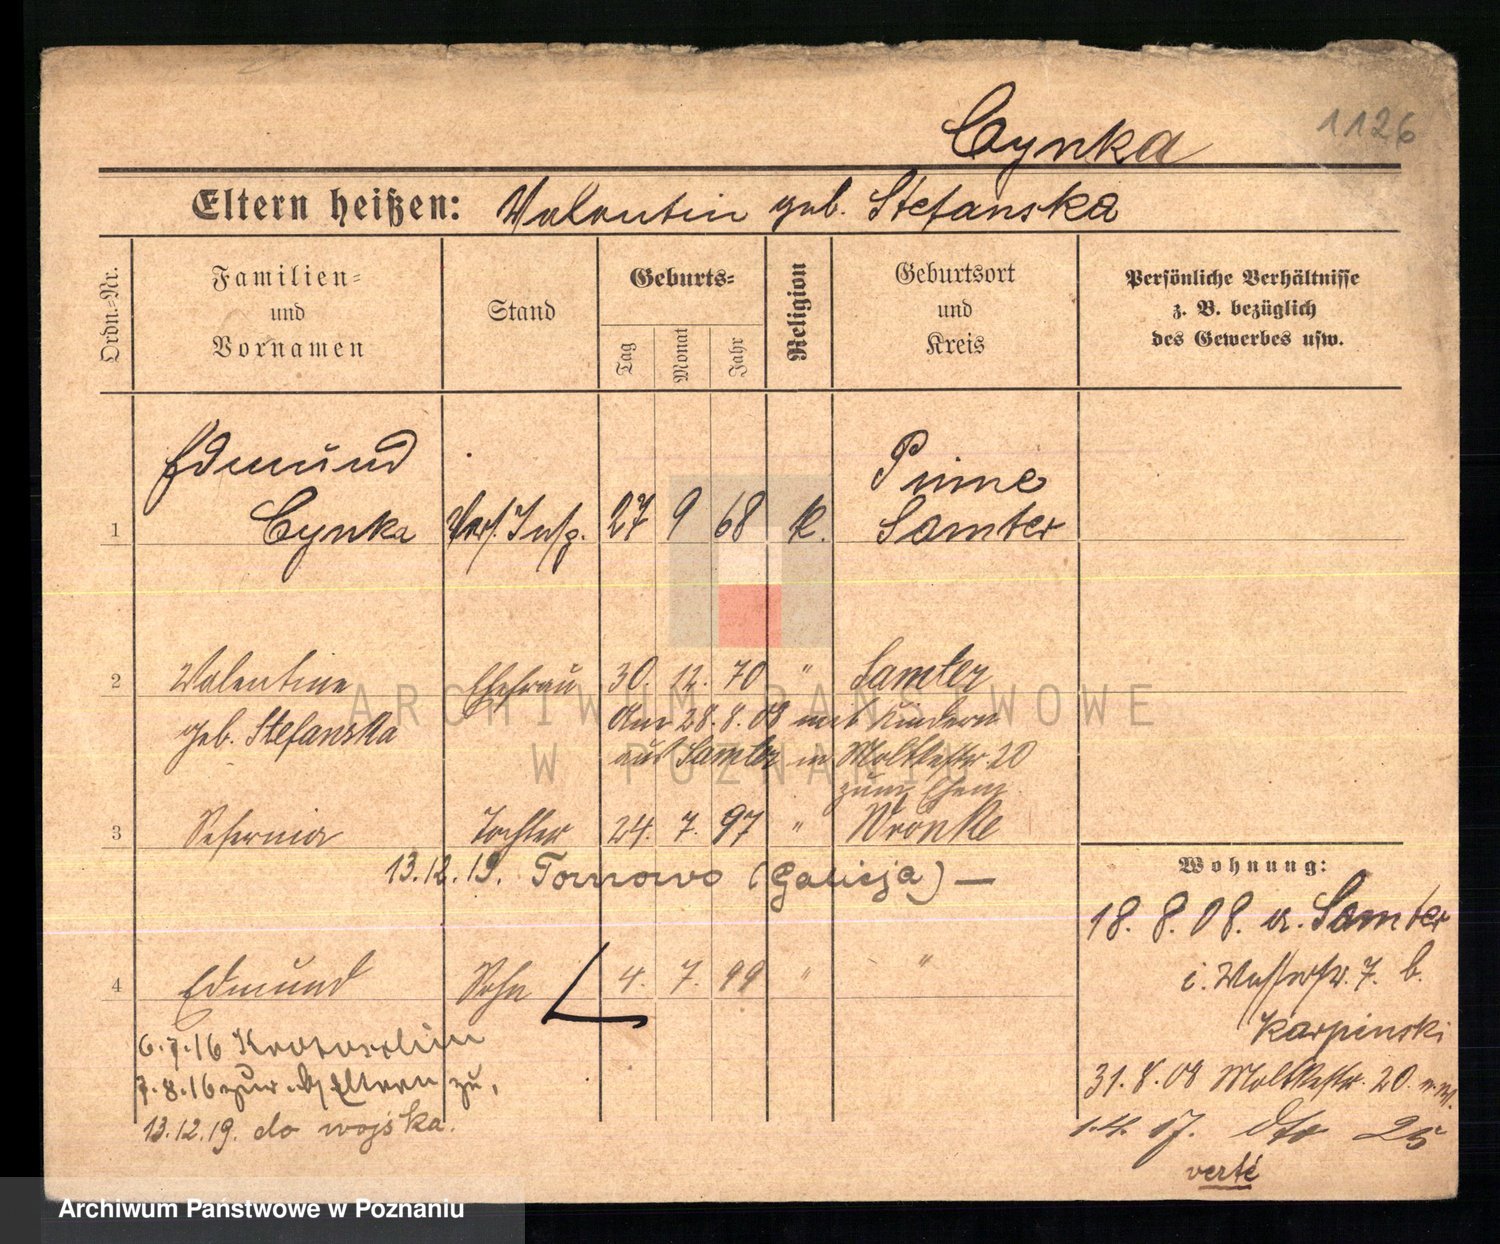 1126
Cynka
Eltern heißen: Valentin geb. Stefanska
Ordn.-Nr.
Familien-
und
Vornamen
Stand
Geburts-
Tag
Monat
Jahr
Religion
Geburtsort
und
Kreis
Persönliche Verhältnisse
z. B. bezüglich
des Gewerbes usw.
Edmund
Pinne
1 Cynka Vers. Insp. 27 9 68 k. Samter
2 Valentine Ehefrau 30. 12. 70 " Samter
geb. Stefanska
28.8.08 mit Kindern
aus Samter in Moltkestr 20
zum Ehem
3 Tochter 24. 7. 97 " Wronke
13.12.19. Tarnowo (Galicja) —
4 Edmund Sohn 4. 7. 99 " "
6.7.16 Krotoschin
7.8.16 zur Eltern zu,
13.12.19. do wojska.
Wohnung:
18. 8. 08. a. Samter
i. 7. b.
Karpinski
31. 8. 08 Moltkestr. 20
1.4. 17. dto 25
verte
ARCHIWUM PAŃSTWOWE
W POZNANIU
Archiwum Państwowe w Poznaniu